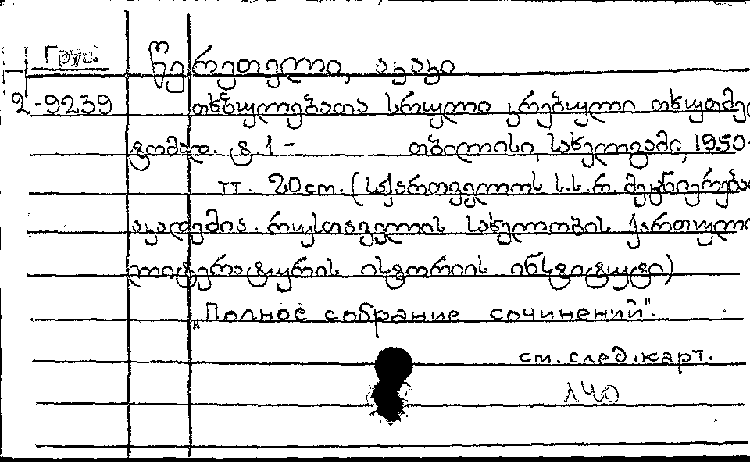 Груз.
წერეთელი, აკაკი
2-9239
თხზულებათა სრული კრებული თხუთმე
ტომად. ტ. 1 - თბილისი, სახელგამი, 1950-
тт. 20см. (საქართველოს ს.ს.რ. მეცნიერებათა
აკადემია. რუსთაველის სახელობის ქართული
ლიტერატურის ისტორიის ინსტიტუტი)
„Полное собрание сочинений".
см. след. карт.
140